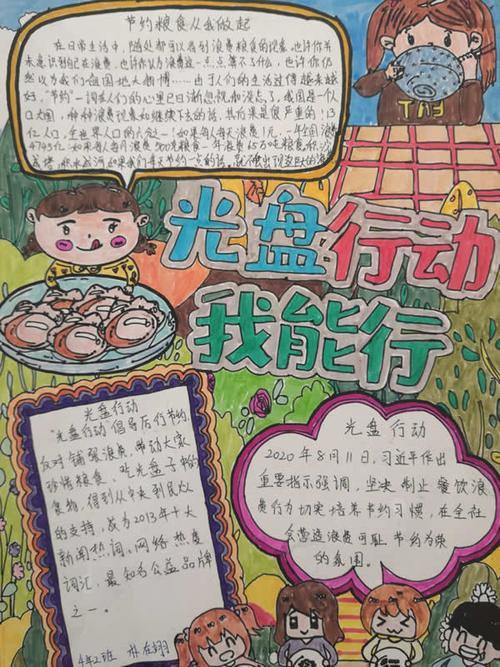 节约粮食从我做起
在日常生活中,随处都可以看到浪费粮食的现象。也许你并
未意识到自己在浪费,也许你认为浪费这一点点算不了什么,也许你仍
然以为我们祖国地大物博……由于人们的生活过得越来越
好,"节约"一词在人们的心里已日渐忽视和淡忘了。我国是一个人
口大国,种种浪费现象如继续下去的话,其后果是很严重的!13
亿人口,全世界人口的六分之一!如果每人每天浪费1元,一年全国浪费
4745亿!如果每人每月浪费500克粮食一年浪费
光盘行动
我能行
光盘行动
"光盘行动"倡导厉行节约,
反对铺张浪费,带动大家
珍惜粮食、吃光盘子中的
食物,得到从中央到民众
的支持,成为2013年十大
新闻热词、网络热度
词汇,最知名公益品牌
之一。
4年2班
光盘行动
2020年8月11日,习近平作出
重要指示强调,坚决制止餐饮浪
费行为切实培养节约习惯,在全社
会营造浪费可耻、节约为荣
的氛围。